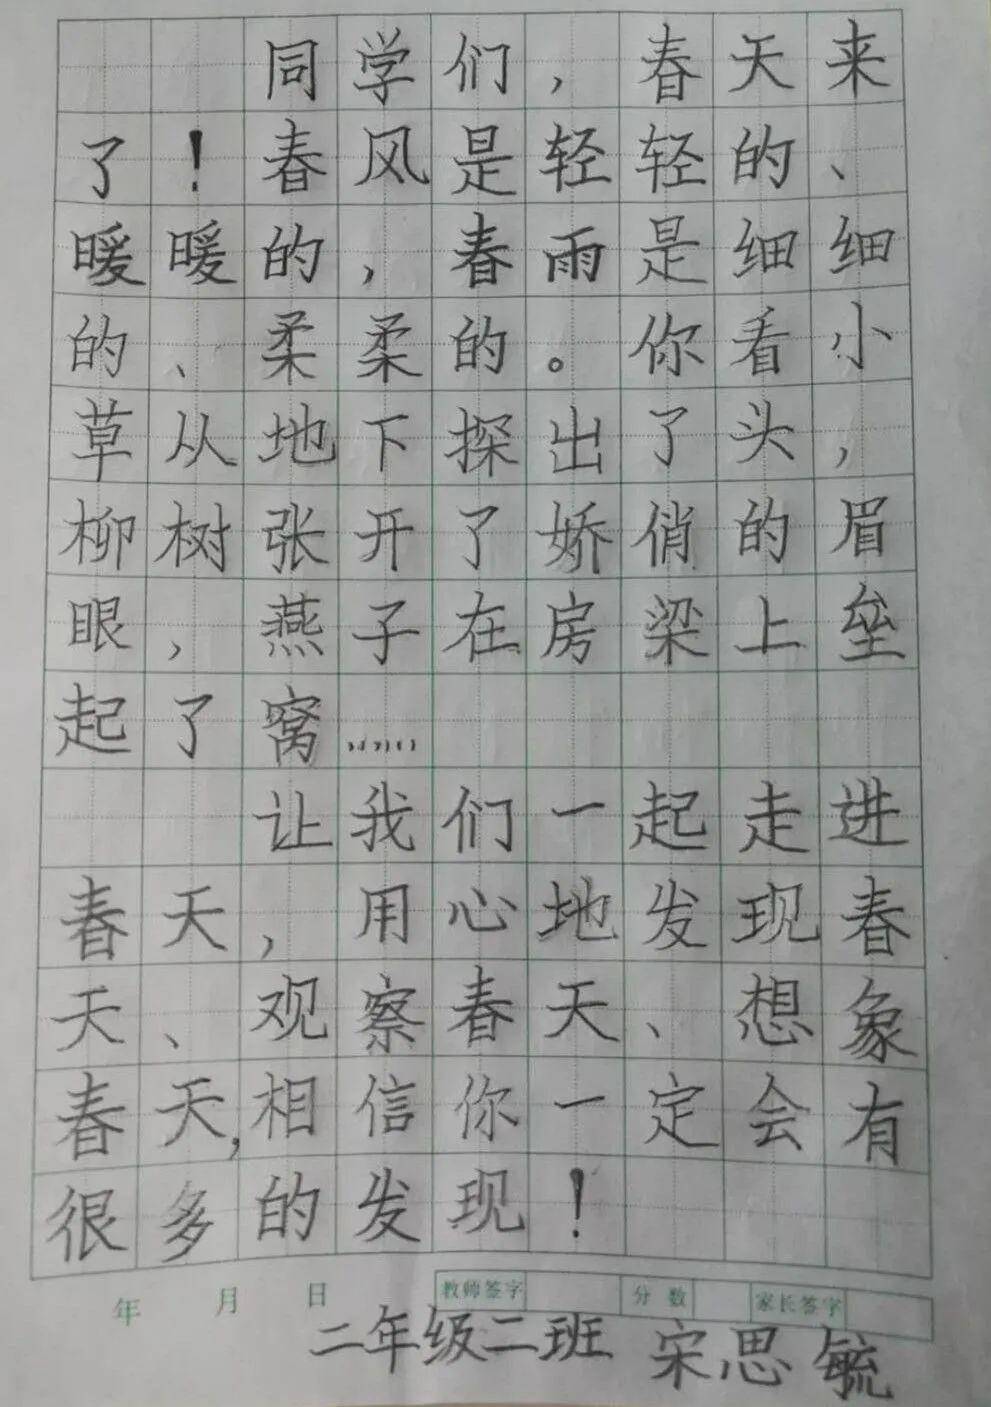 同学们，春天来
了！春风是轻轻的、
暖暖的，春雨是细细
的、柔柔的。你看小
草从地下探出了头，
柳树张开了娇俏的眉
眼，燕子在房梁上垒
起了窝……
让我们一起走进
春天，用心地发现春
天、观察春天、想象
春天，相信你一定会有
很多的发现！
年 月 日 教师签字 分数 家长签字
二年级二班 宋思毓